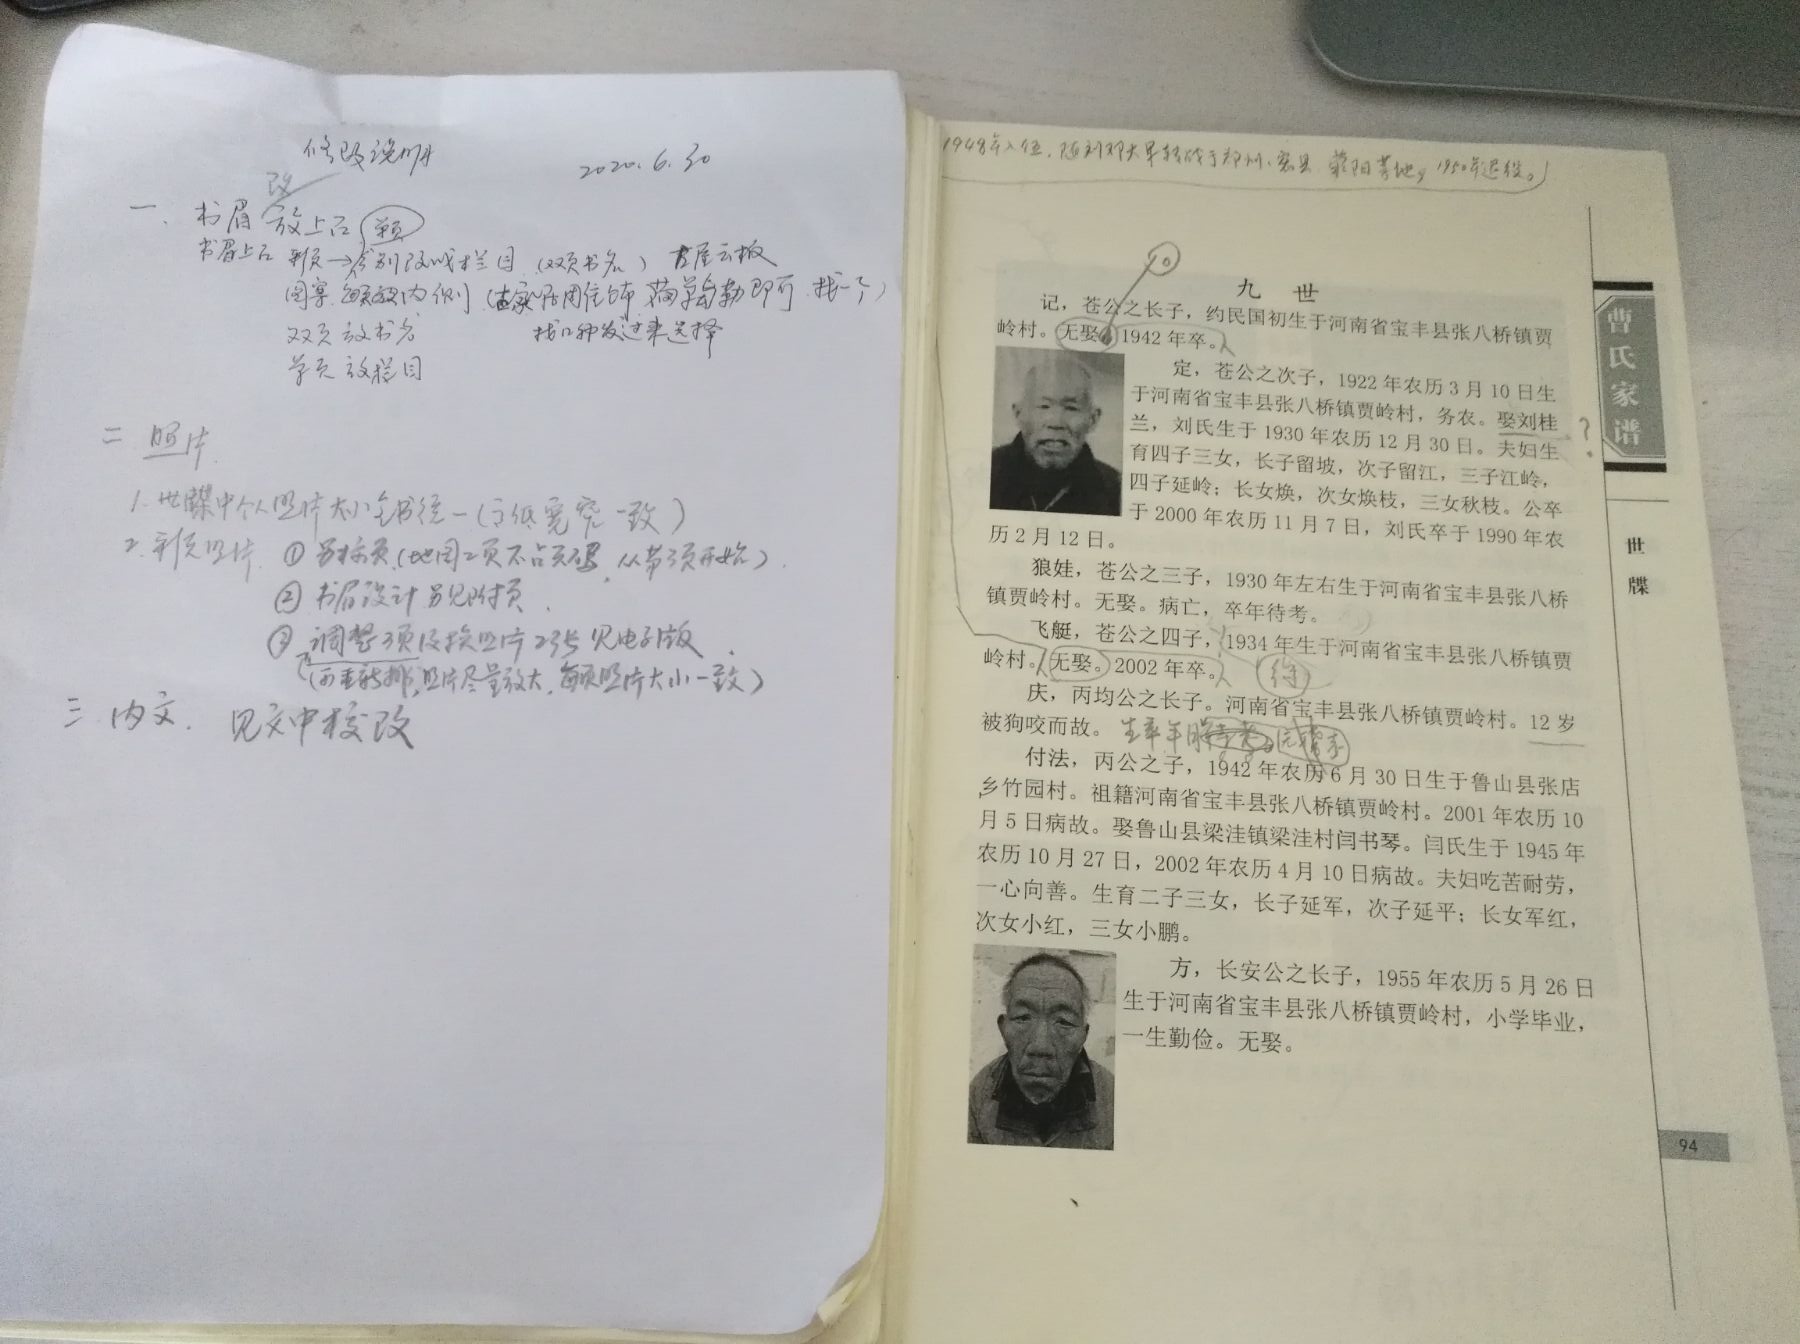 修改说明
2020.6.30
改
一、书眉 放上后 单页
书眉上后 彩页→分别改成栏目(双页书名)
图案 每页放内侧
双页放书名
找几种发过来选择
单页放栏目
二 照片
1. 世牒中个人照片大小全书统一(高低宽窄一致)
2. 彩页照片 ① 另标页(地图2页不占页码,从第3页开始)
② 书眉设计另见附页.
③ 调整页及换照片 见电子版
(可重新排,照片尽量放大,每页照片大小一致)
三. 内文. 见文中校改
1948年入伍,随刘邓大军转战于郑州、襄县、荥阳等地,1950年退役。
九 世
记,苍公之长子,约民国初生于河南省宝丰县张八桥镇贾
岭村。无娶。1942年卒。
定,苍公之次子,1922年农历3月10日生
于河南省宝丰县张八桥镇贾岭村,务农。娶刘桂
兰,刘氏生于1930年农历12月30日。夫妇生
?
育四子三女,长子留坡,次子留江,三子江岭,
四子延岭;长女焕,次女焕枝,三女秋枝。公卒
于2000年农历11月7日,刘氏卒于1990年农
历2月12日。
狼娃,苍公之三子,1930年左右生于河南省宝丰县张八桥
镇贾岭村。无娶。病亡,卒年待考。
飞艇,苍公之四子,1934年生于河南省宝丰县张八桥镇贾
岭村。无娶。2002年卒。
庆,丙均公之长子。河南省宝丰县张八桥镇贾岭村。12岁
被狗咬而故。生卒年
付法,丙公之子,1942年农历6月30日生于鲁山县张店
乡竹园村。祖籍河南省宝丰县张八桥镇贾岭村。2001年农历10
月5日病故。娶鲁山县梁洼镇梁洼村闫书琴。闫氏生于1945年
农历10月27日,2002年农历4月10日病故。夫妇吃苦耐劳,
一心向善。生育二子三女,长子延军,次子延平;长女军红,
次女小红,三女小鹏。
方,长安公之长子,1955年农历5月26日
生于河南省宝丰县张八桥镇贾岭村,小学毕业,
一生勤俭。无娶。
曹氏家谱
世牒
94